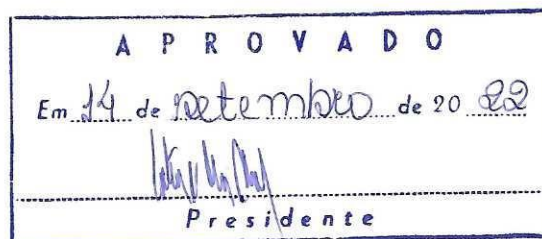 APROVADO
Em 14 de setembro de 20 22
Presidente